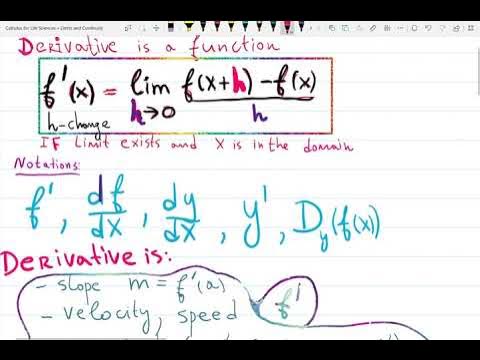 Calculus for Life Sciences – Limits and Continuity
Derivative is a function
f'(x) = lim h→0 f(x+h) - f(x) / h
h-change
IF Limit exists and x is in the domain
Notations:
f', df/dx, dy/dx, y', Dy(f(x))
Derivative is:
- slope m = f'(a)
f'
- velocity, speed